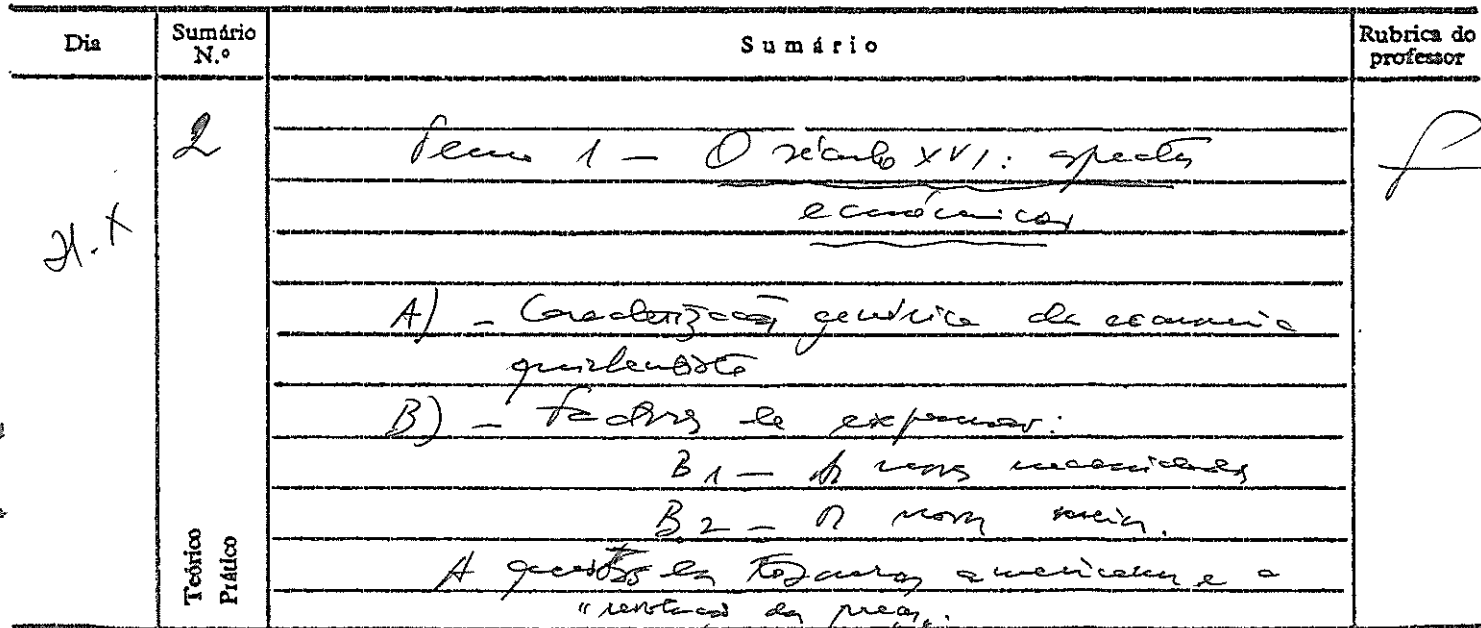 Dia Sumário N.º Sumário Rubrica do professor
2 Tema 1 — O século XVI: aspectos
económicos
A) — Caracterização genérica da economia
quinhentista
B) — Factores de expansão:
B1 — As novas necessidades
B2 — Os novos meios.
A questão dos tesouros americanos e a
"revolução dos preços".
Teórico
Prático